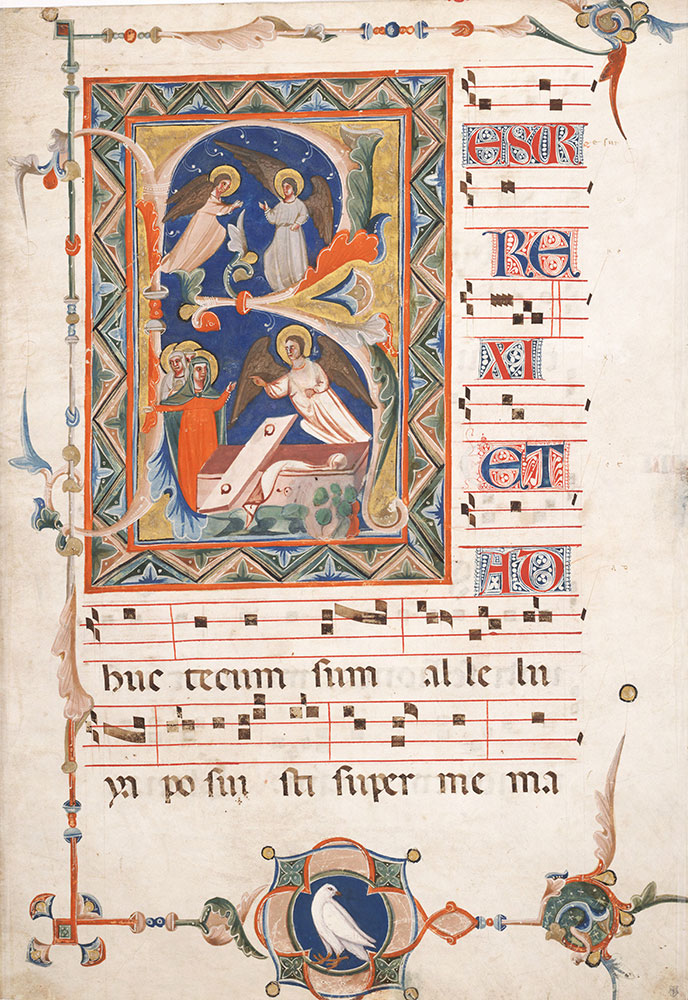 RESUR
RE
XI
ET
AD
huc tecum sum al le lu
ya po sui sti super me ma